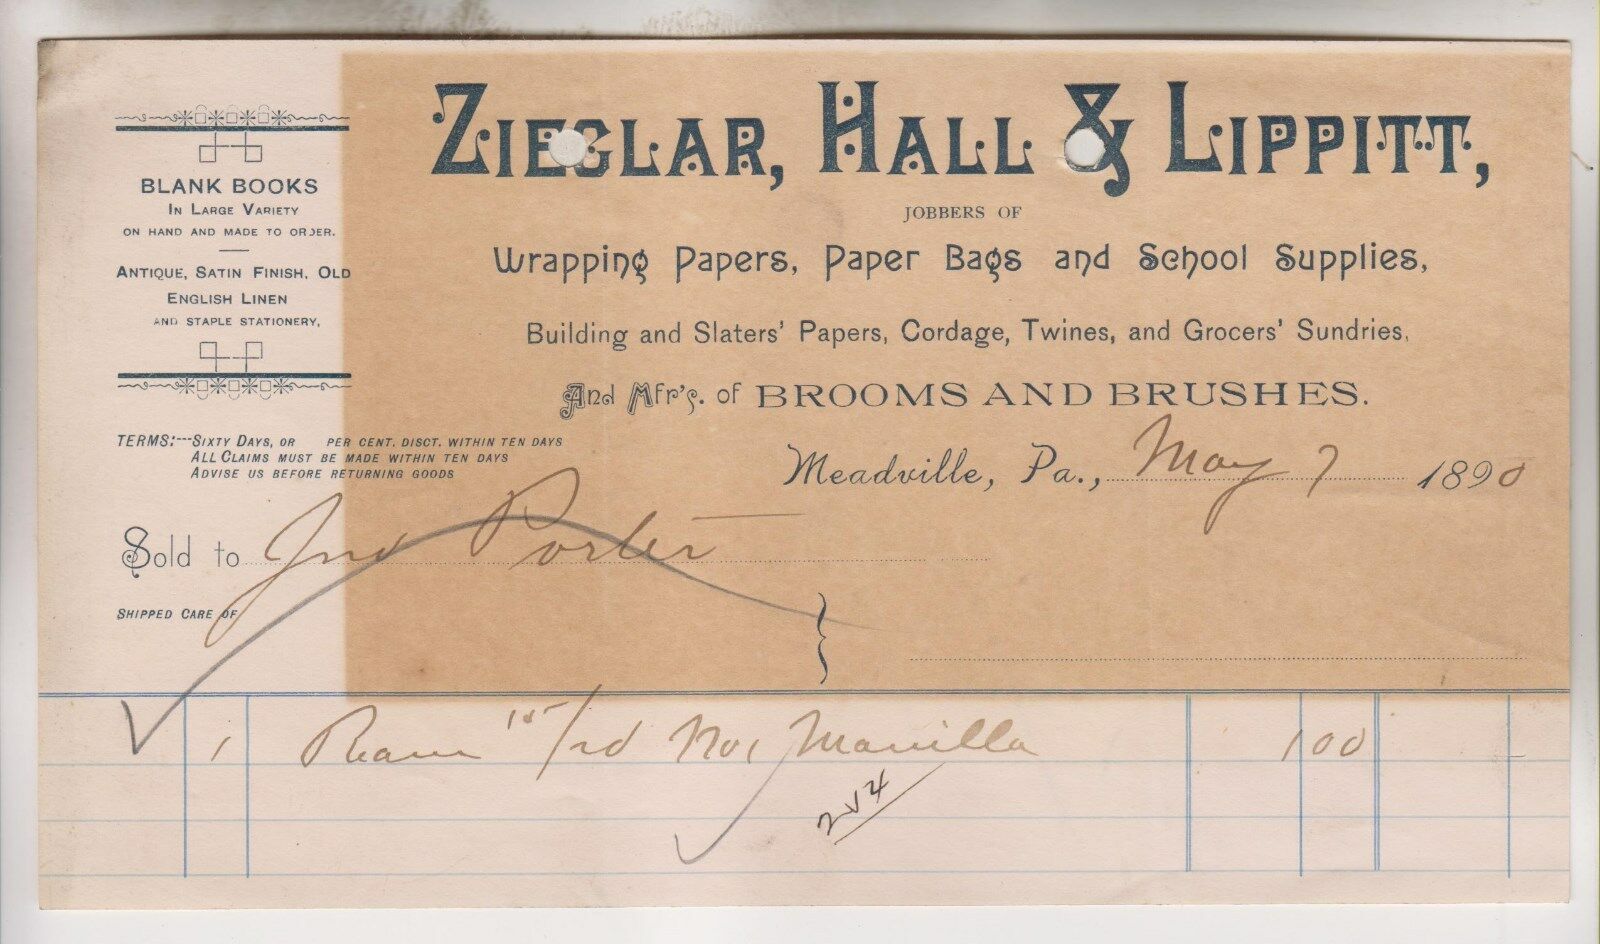 ZIEGLAR, HALL & LIPPITT,
JOBBERS OF
Wrapping Papers, Paper Bags and School Supplies,
Building and Slaters' Papers, Cordage, Twines, and Grocers' Sundries,
And Mfr's. of BROOMS AND BRUSHES.
BLANK BOOKS
IN LARGE VARIETY
ON HAND AND MADE TO ORDER.
ANTIQUE, SATIN FINISH, OLD
ENGLISH LINEN
AND STAPLE STATIONERY,
TERMS:---SIXTY DAYS, OR PER CENT. DISCT. WITHIN TEN DAYS
ALL CLAIMS MUST BE MADE WITHIN TEN DAYS
ADVISE US BEFORE RETURNING GOODS
Meadville, Pa., May 7 1890
Sold to Jno Porter
SHIPPED CARE OF
1 Ream 15/rd No1 Manilla 100